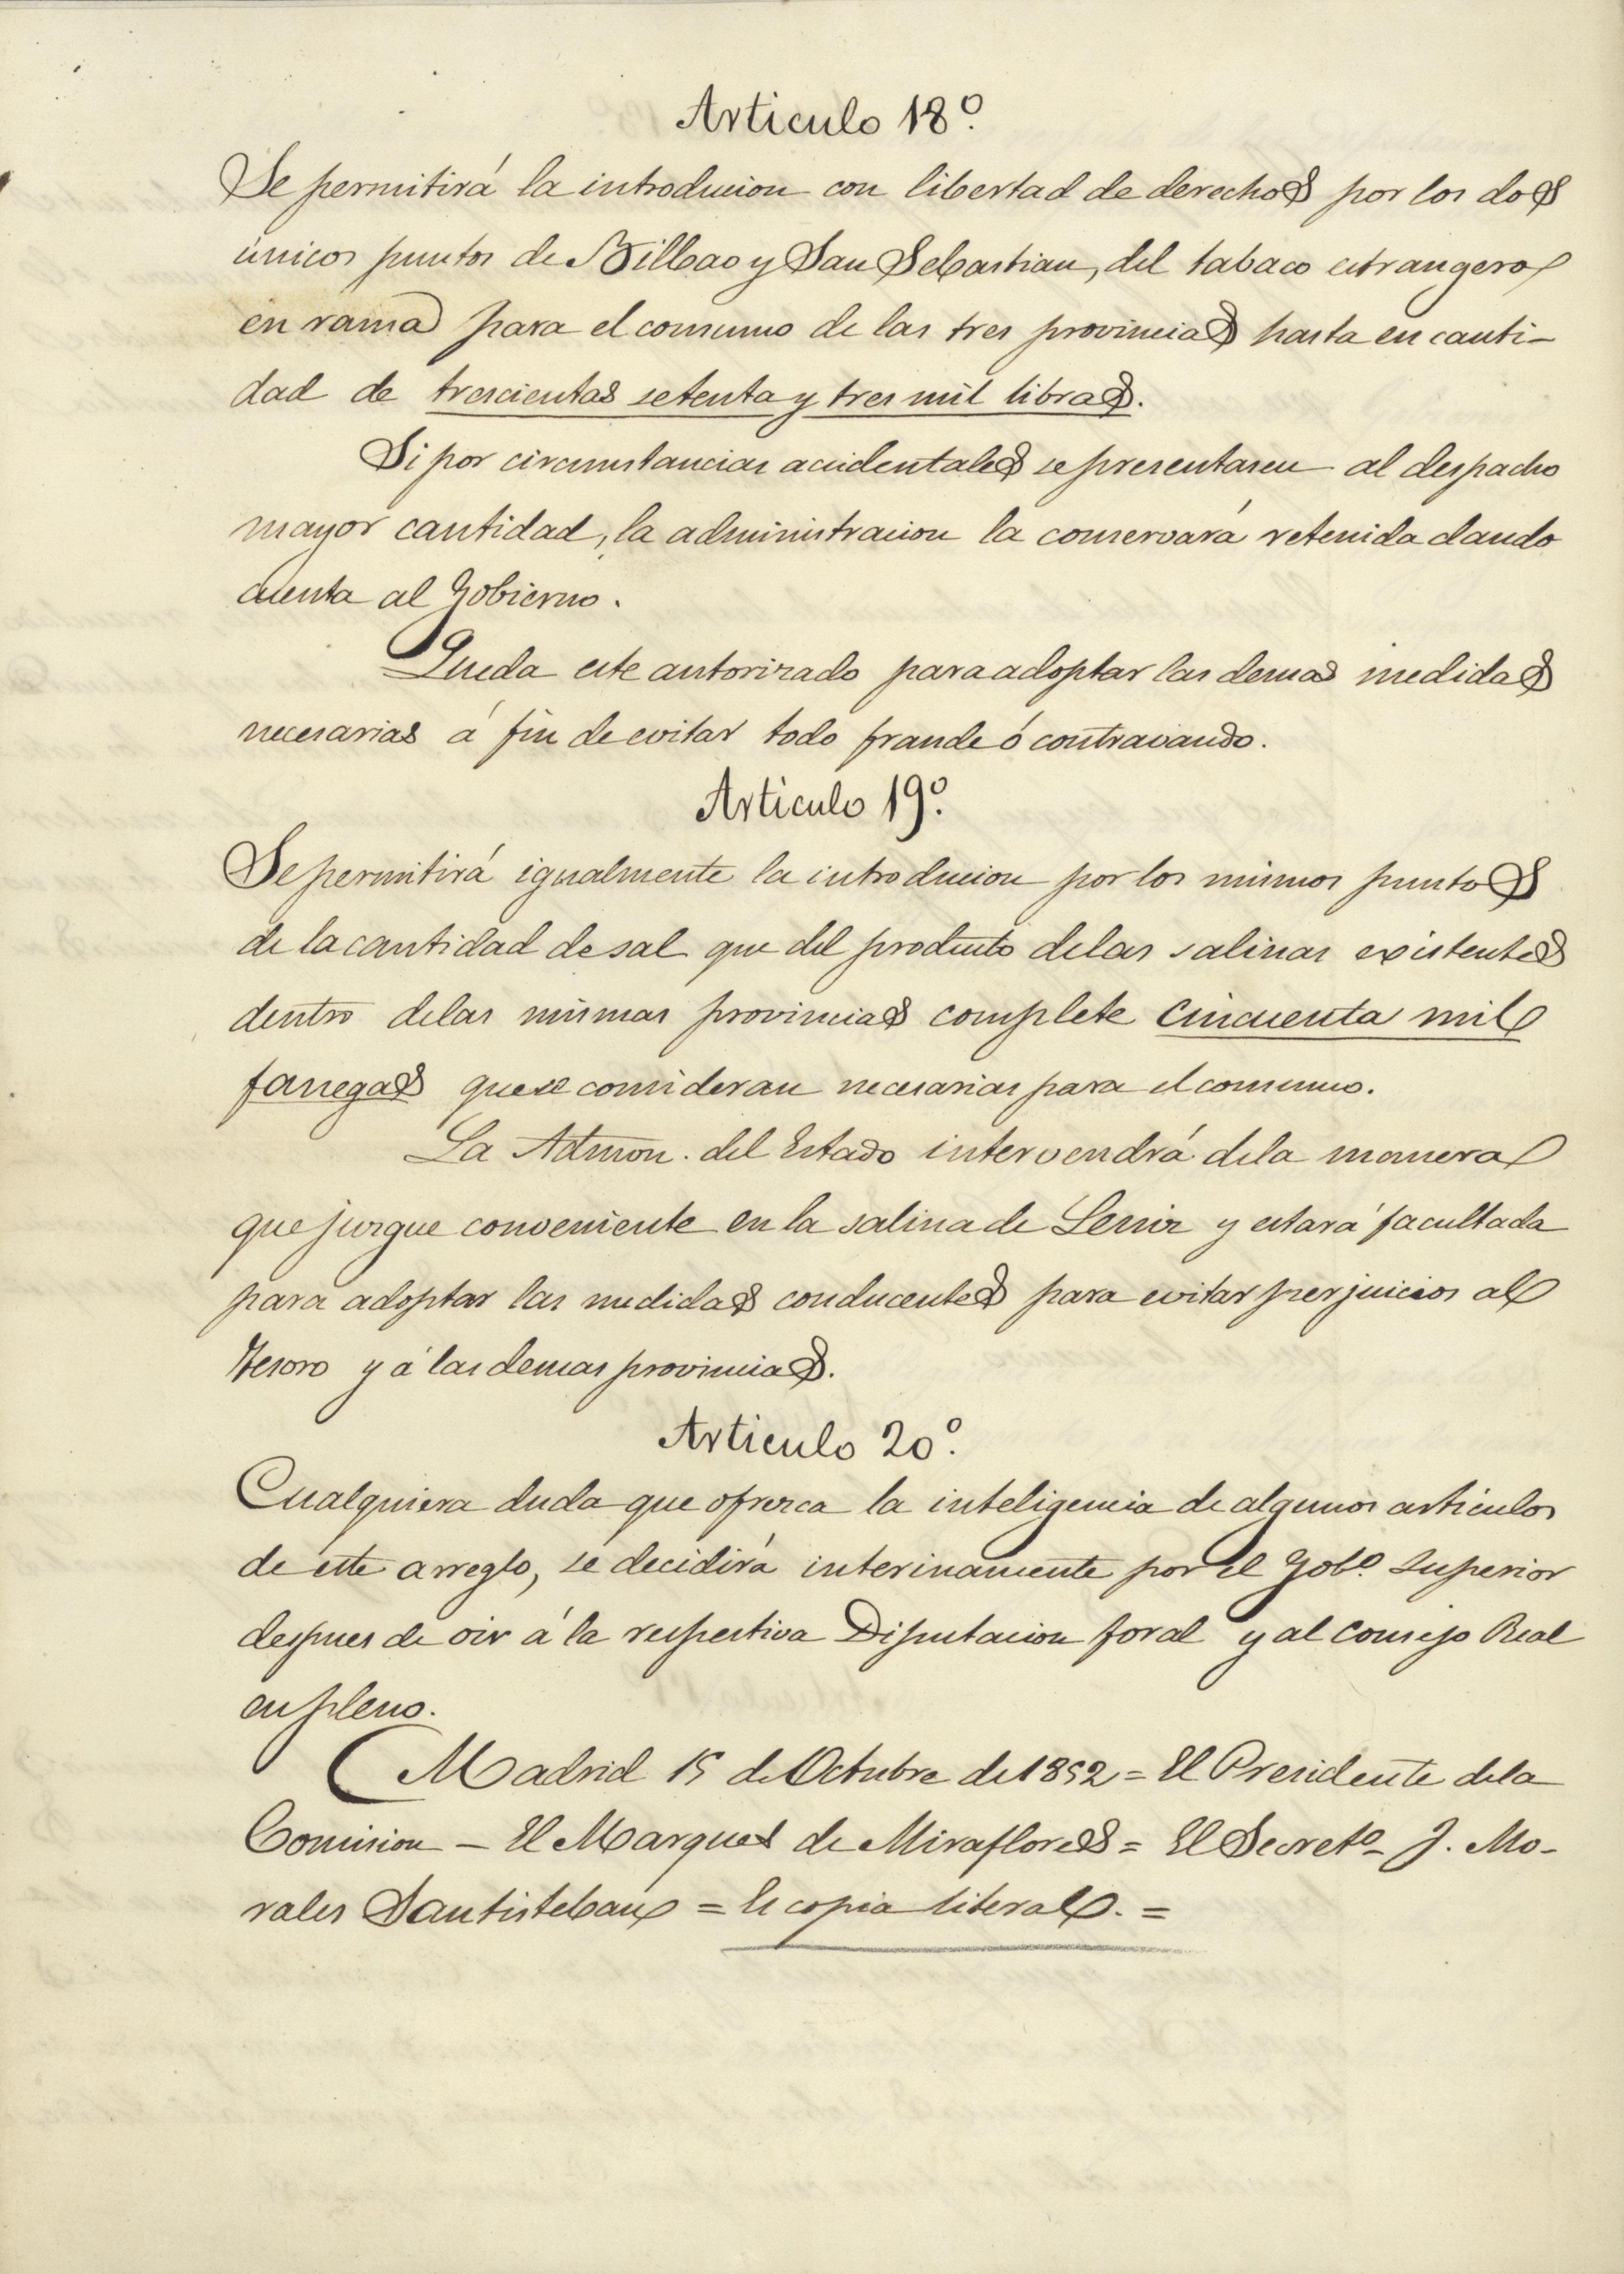 Articulo 18º.
Se permitirá la introducion con libertad de derechos por los dos
únicos puntos de Bilbao y San Sebastian, del tabaco estrangero
en rama para el consumo de las tres provincias hasta en canti-
dad de trescientas setenta y tres mil libras.
Si por circunstancias accidentales se presentasen al despacho
mayor cantidad, la administracion la conservará retenida dando
cuenta al Gobierno.
Queda este autorizado para adoptar las demas medidas
necesarias á fin de evitar todo fraude ó contravando.
Articulo 19º.
Se permitirá igualmente la introducion por los mismos puntos
de la cantidad de sal que del producto de las salinas existentes
dentro de las mismas provincias complete cincuenta mil
fanegas que se consideran necesarias para el consumo.
La Admon. del Estado intervendrá de la manera
que juzgue conveniente en la salina de Leniz y estará facultada
para adoptar las medidas conducentes para evitar perjuicios al
Tesoro y á las demas provincias.
Articulo 20º.
Cualquiera duda que ofrezca la inteligencia de algunos articulos
de este arreglo, se decidirá interinamente por el Gobº. Superior
despues de oir á la respectiva Diputacion foral y al Consejo Real
en pleno.
Madrid 15 de Octubre de 1852 = El Presidente de la
Comision – El Marques de Miraflores = El Secretº – J. Mo-
rales Santisteban = Es copia literal. =